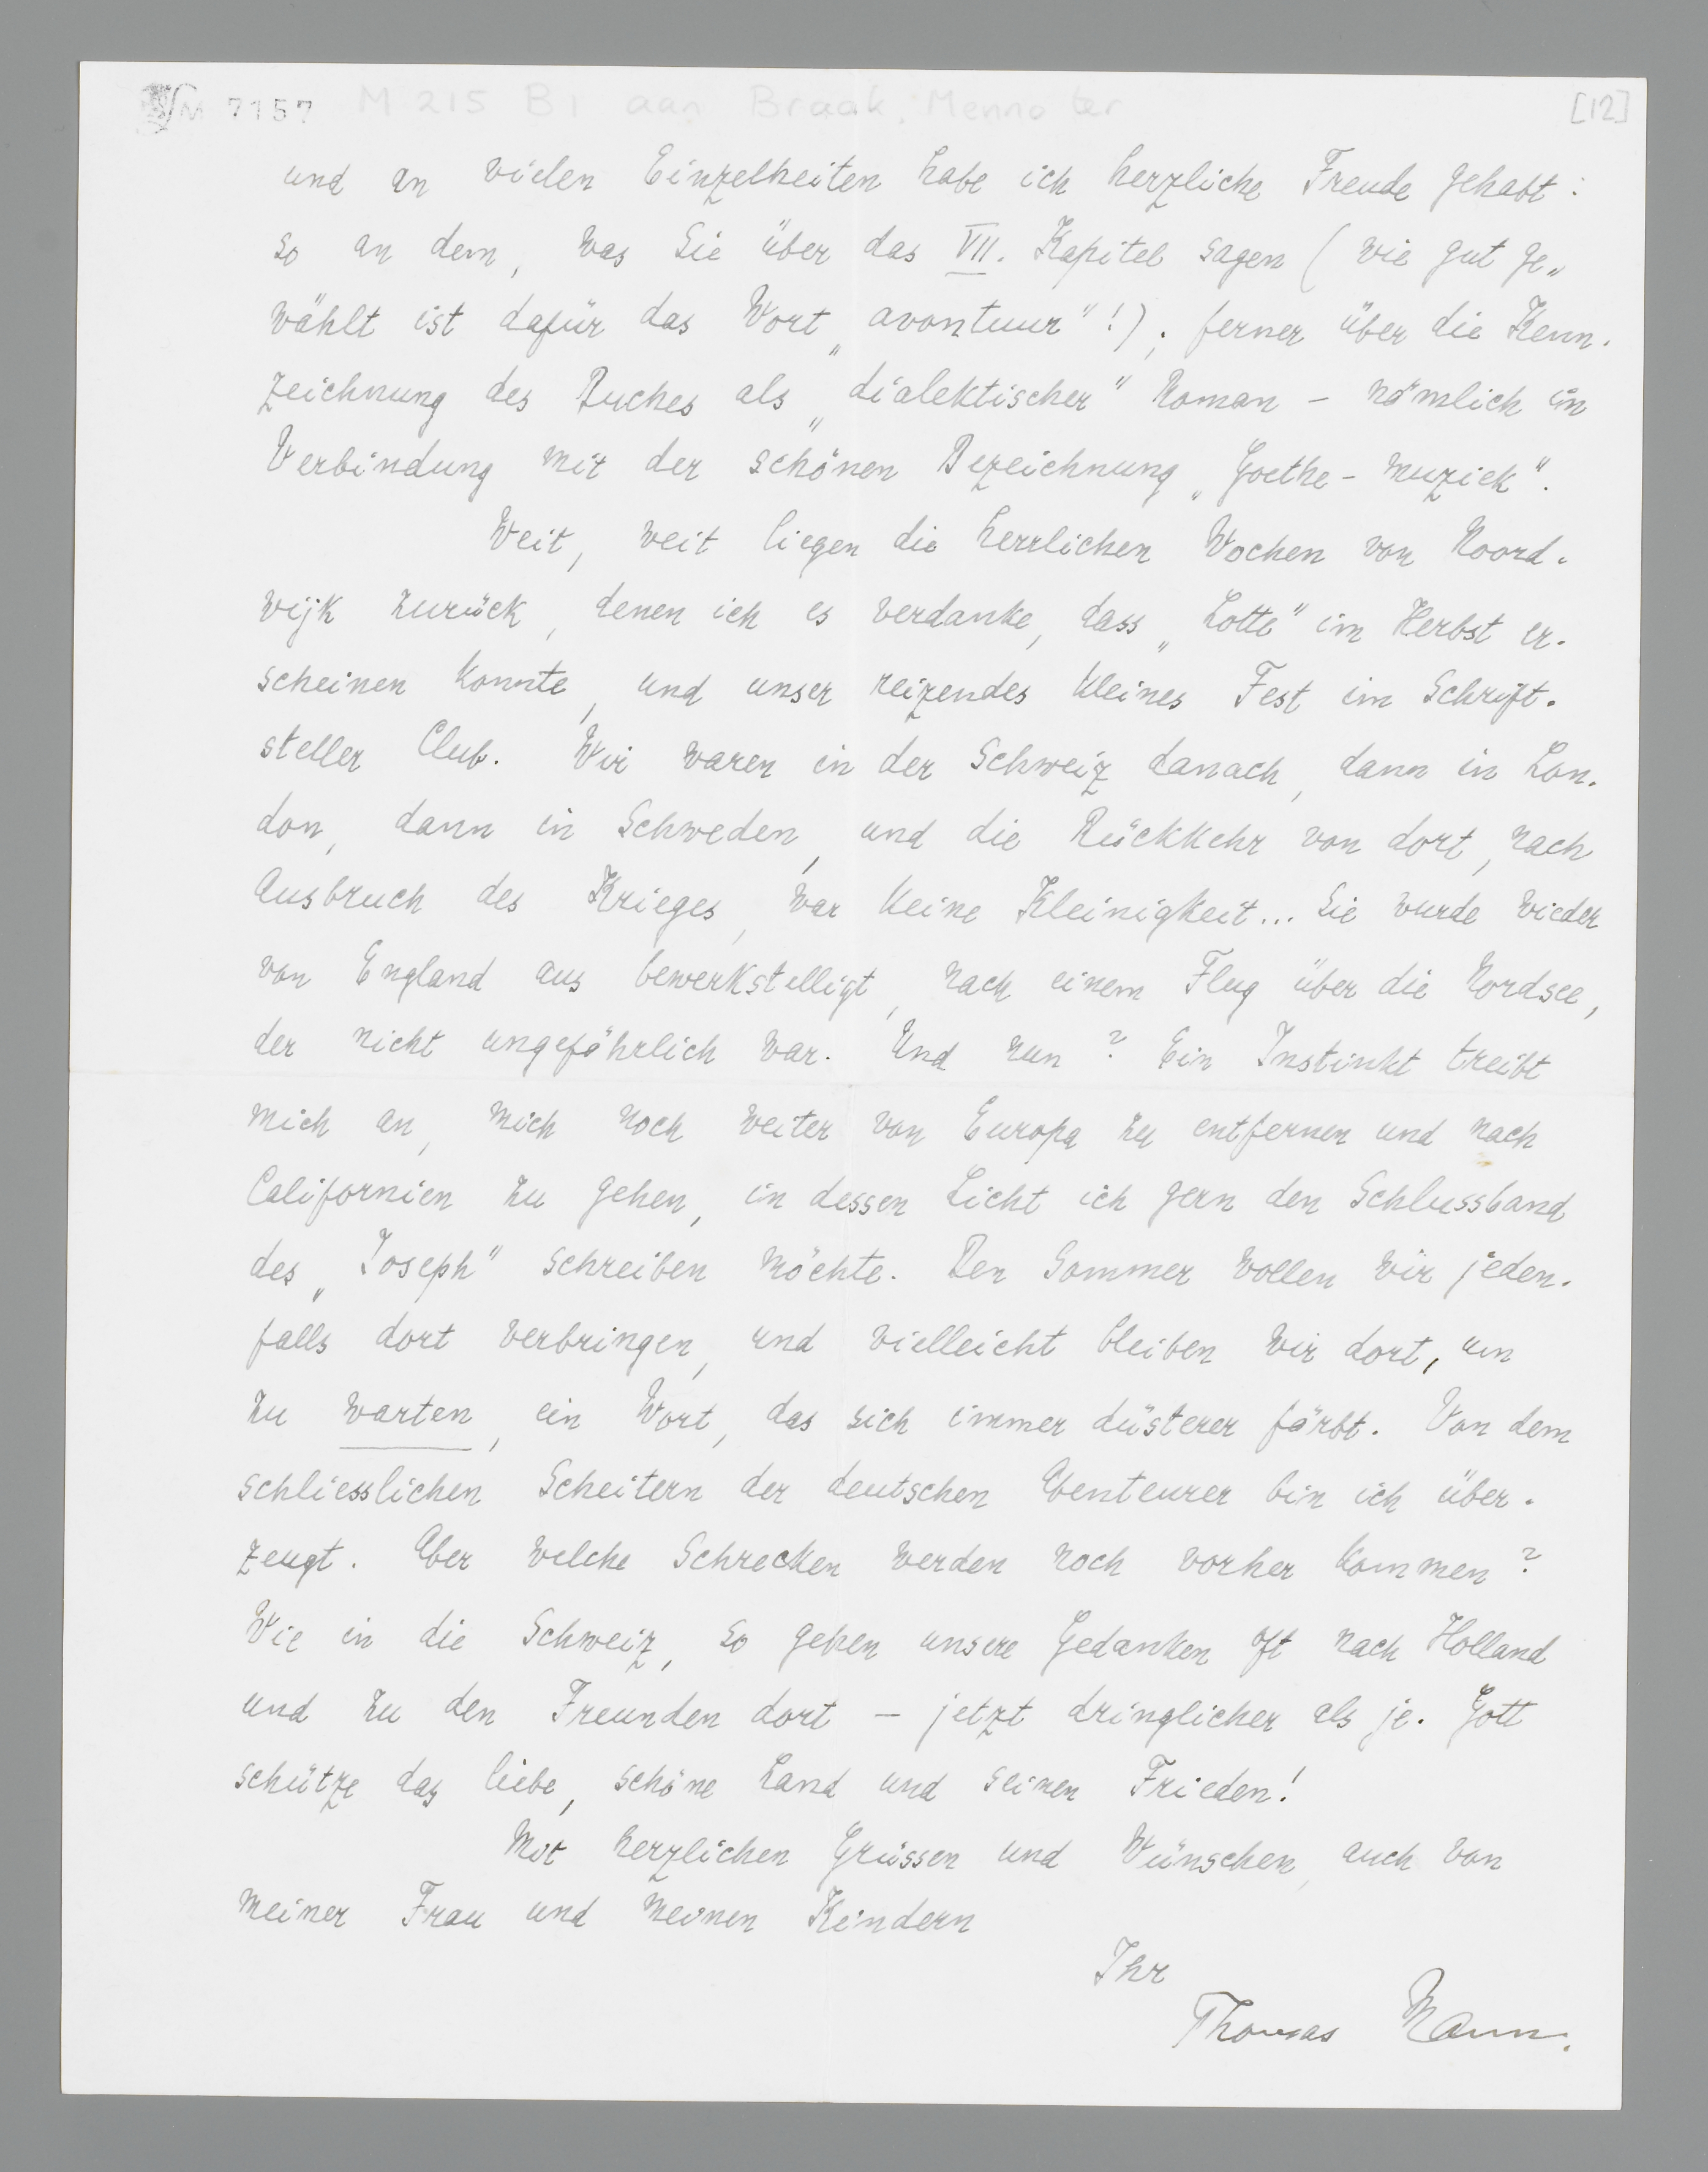 M 7157 M 215 B1 aan Braak, Menno ter [12]
und an vielen Einzelheiten habe ich herzliche Freude gehabt:
so an dem, was Sie über das VII. Kapitel sagen (wie gut ge„
wählt ist dafür das Wort „avontuur"!); ferner über die Kenn.
zeichnung des Buches als „dialektischer" Roman – nämlich in
Verbindung mit der schönen Bezeichnung „Goethe-muziek".
Weit, weit liegen die herrlichen Wochen von Noord.
wijk zurück, denen ich es verdanke, dass „Lotte" im Herbst er.
scheinen konnte, und unser reizendes kleines Fest im Schrift.
steller Club. Wir waren in der Schweiz danach, dann in Lon.
don, dann in Schweden, und die Rückkehr von dort, nach
Ausbruch des Krieges, war keine Kleinigkeit... Sie wurde wieder
von England aus bewerkstelligt, nach einem Flug über die Nordsee,
der nicht ungefährlich war. Und nun? Ein Instinkt treibt
mich an, mich noch weiter von Europa zu entfernen und nach
Californien zu gehen, in dessen Licht ich gern den Schlussband
des „Joseph" schreiben möchte. Den Sommer wollen wir jeden.
falls dort verbringen, und vielleicht bleiben wir dort, um
zu warten, ein Wort, das sich immer düsterer färbt. Von dem
schliesslichen Scheitern der deutschen Abenteurer bin ich über.
zeugt. Aber welche Schrecken werden noch vorher kommen?
Wie in die Schweiz, so gehen unsere Gedanken oft nach Holland
und zu den Freunden dort – jetzt dringlicher als je. Gott
schütze das liebe, schöne Land und seinen Frieden!
Mit herzlichen Grüssen und Wünschen, auch von
meiner Frau und meinen Kindern
Ihr
Thomas Mann.